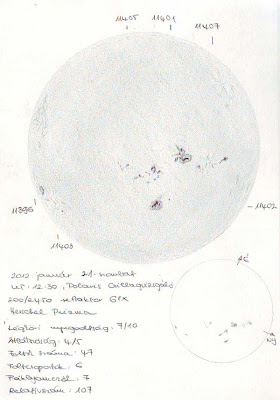 11405 11401 11407
11402
11396
11403
2012. január 21. szombat
UT: 12:30, Polaris Csillagvizsgáló
200/2470 refraktor 61x
Herschel Prizma
Légköri nyugodtság: 7/10
Átlátszóság: 4/5
Foltok száma: 47
Foltcsoportok: 6
Fáklyamezők: 7
Relatívszám: 107
Ny